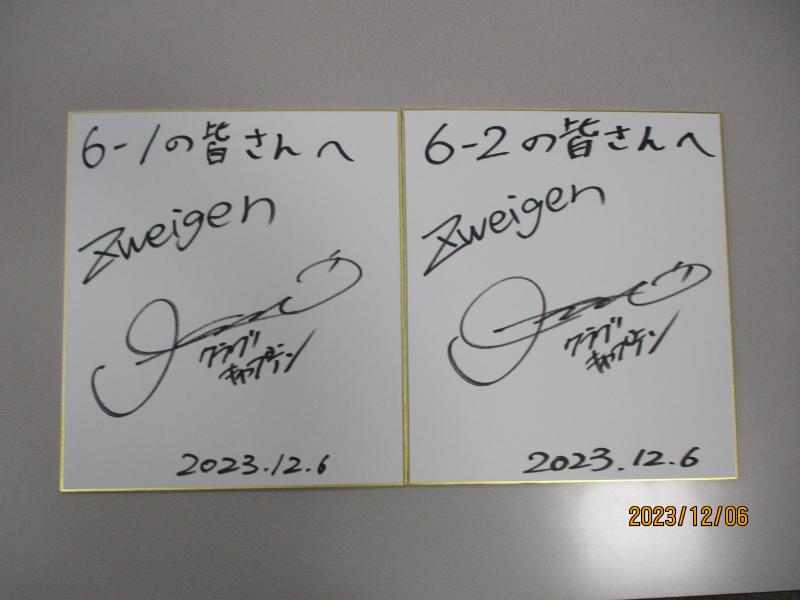 6-1の皆さんへ
Zweigen
クラブ
キャプテン
2023.12.6
6-2の皆さんへ
Zweigen
クラブ
キャプテン
2023.12.6
2023/12/06